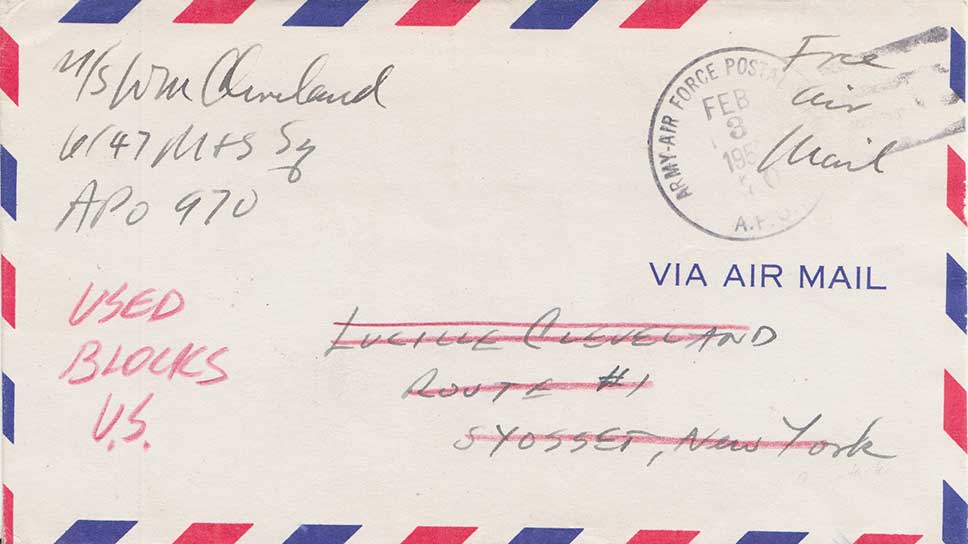 M/S Wm Cleveland
6147 M+S Sq
APO 970
Free
Air
Mail
ARMY-AIR FORCE POSTAL
FEB
3
195
A.P.O
VIA AIR MAIL
USED
BLOCKS
U.S.
LUCILLE CLEVELAND
ROUTE #1
SYOSSET, New York